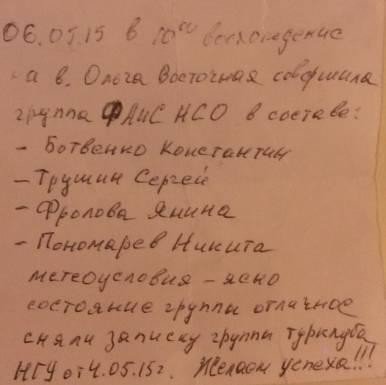 06.05.15 в 10⁰⁰ восхождение
на в. Ольга Восточная совершила
группа ФАиС НСО в составе:
- Ботвенко Константин
- Трушин Сергей
- Фролова Янина
- Пономарев Никита
метеоусловия - ясно
состояние группы отличное
сняли записку группы турклуба
НГУ от 4.05.15г. Желаем успеха!!!